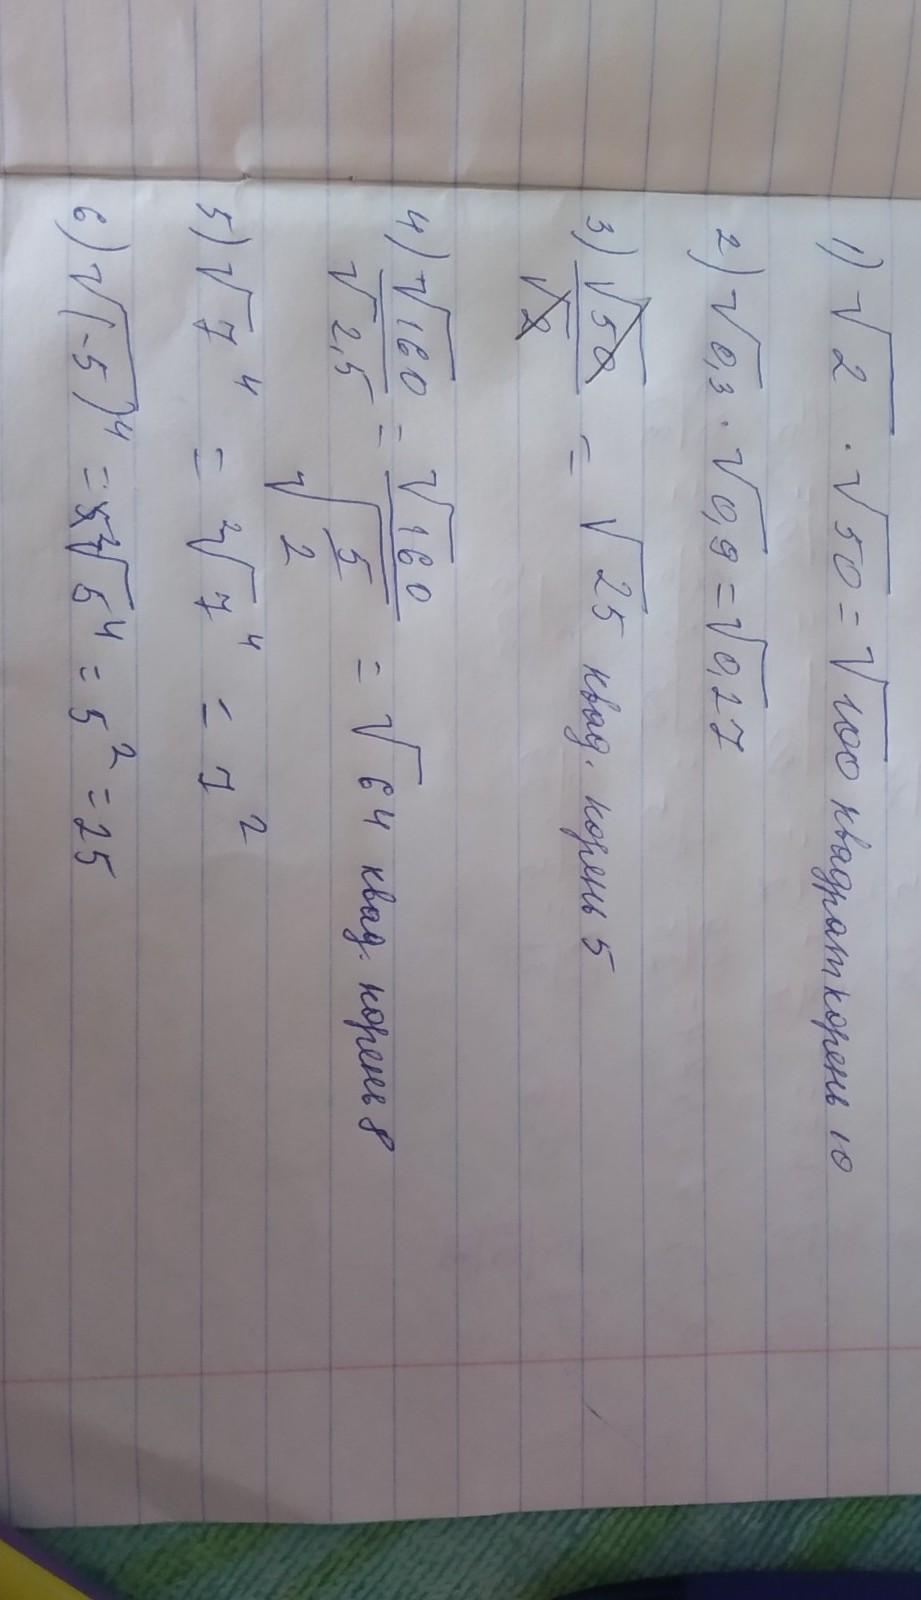 1) √2 · √50 = √100 квадрат корень 10
2) √0,3 · √0,9 = √0,27
3) √50/√2 = √25 квад. корень 5
4) √160/√2,5 = √160/√(5/2) = √64 квад. корень 8
5) √7⁴ = ²√7⁴ = 7²
6) √(-5)⁴ = ²√5⁴ = 5² = 25